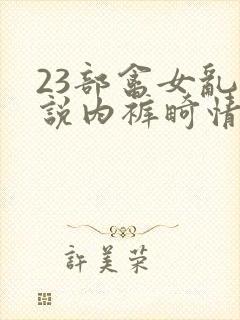 23部畲女乱
說内裤畸情
許美荣